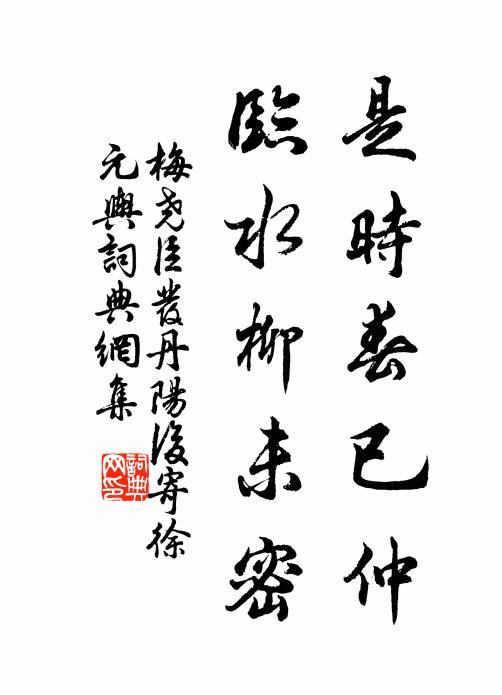 是時春已仲
臨水柳未密
梅堯臣發丹陽後寄徐
元輿詞典網集
詞典
网印